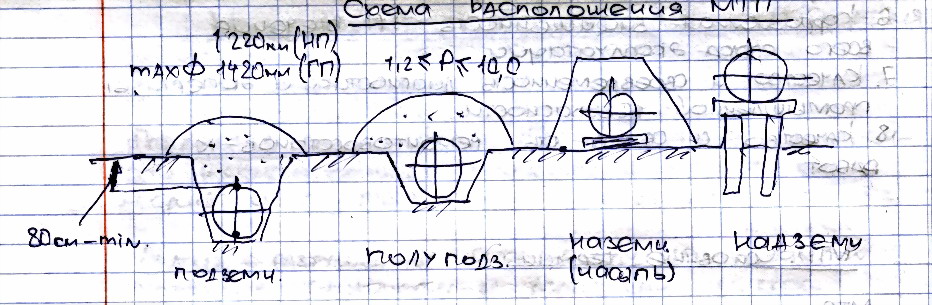 Схема расположения МТП
1220мм (НП)
max Ф 1420мм (ГП)
1,2 ≤ P ≤ 10,0
80см-min.
подземн.
полуподз.
наземн.
(насыпь)
надземн